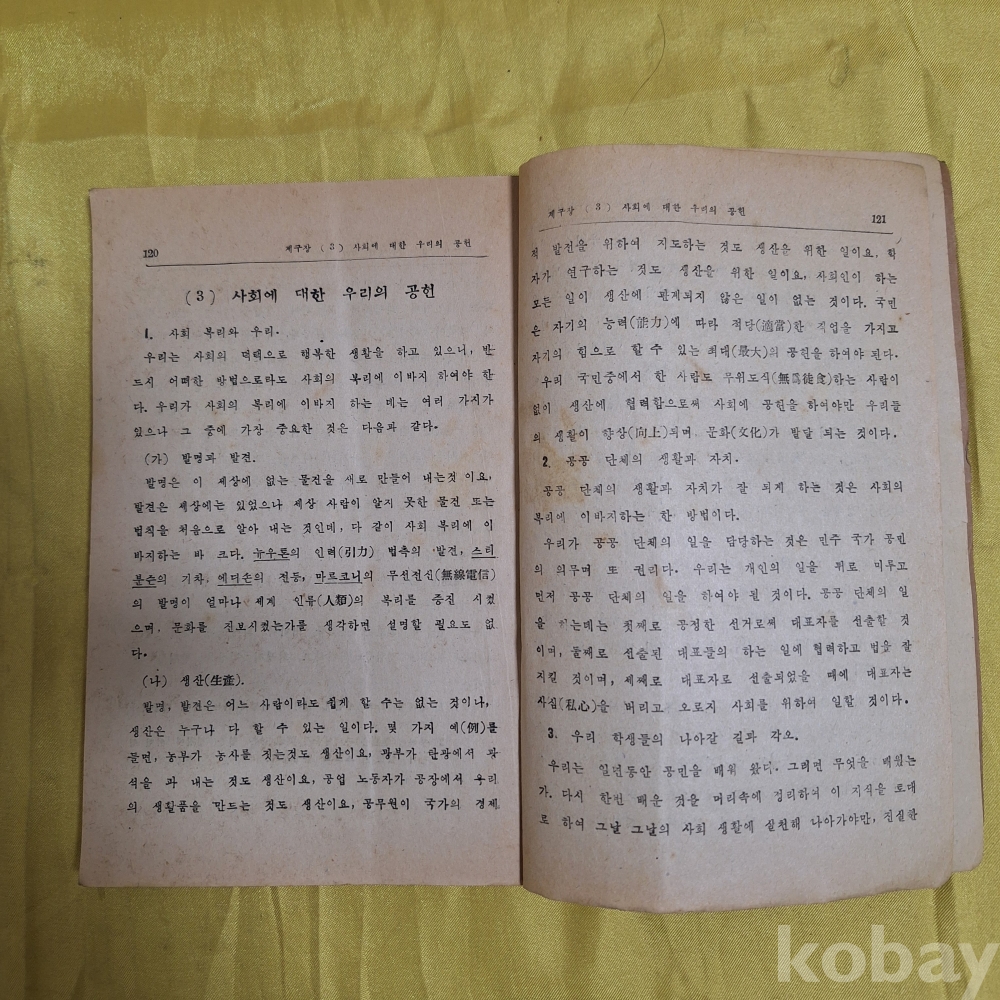 120
제구장 (3) 사회에 대한 우리의 공헌
(3) 사회에 대한 우리의 공헌
1. 사회 복리와 우리.
우리는 사회의 덕택으로 행복한 생활을 하고 있으니, 반
드시 어떠한 방법으로라도 사회의 복리에 이바지 하여야 한
다. 우리가 사회의 복리에 이바지 하는 데는 여러 가지가
있으나 그 중에 가장 중요한 것은 다음과 같다.
(가) 발명과 발견.
발명은 이 세상에 없는 물건을 새로 만들어 내는것 이요,
발견은 세상에는 있었으나 세상 사람이 알지 못한 물건 또는
법칙을 처음으로 알아 내는 것인데, 다 같이 사회 복리에 이
바지하는 바 크다. 뉴우톤의 인력(引力) 법측의 발견, 스티
븐슨의 기차, 에디손의 전등, 마르코니의 무선전신(無線電信)
의 발명이 얼마나 세계 인류(人類)의 복리를 증진 시켰
으며, 문화를 진보시켰는가를 생각하면 설명할 필요도 없
다.
(나) 생산(生產).
발명, 발견은 어느 사람이라도 쉽게 할 수는 없는 것이나,
생산은 누구나 다 할 수 있는 일이다. 몇 가지 예(例)를
들면, 농부가 농사를 짓는것도 생산이요, 광부가 탄광에서 광
석을 파 내는 것도 생산이요, 공업 노동자가 공장에서 우리
의 생활품을 만드는 것도 생산이요, 공무원이 국가의 경제
제구장 (3) 사회에 대한 우리의 공헌
121
적 발전을 위하여 지도하는 것도 생산을 위한 일이요, 학
자가 연구하는 것도 생산을 위한 일이요, 사회인이 하는
모든 일이 생산에 관계되지 않은 일이 없는 것이다. 국민
은 자기의 능력(能力)에 따라 적당(適當)한 직업을 가지고
자기의 힘으로 할 수 있는 최대(最大)의 공헌을 하여야 된다.
우리 국민중에서 한 사람도 무위도식(無爲徒食)하는 사람이
없이 생산에 협력함으로써 사회에 공헌을 하여야만 우리들
의 생활이 향상(向上)되며 문화(文化)가 발달 되는 것이다.
2. 공공 단체의 생활과 자치.
공공 단체의 생활과 자치가 잘 되게 하는 것은 사회의
복리에 이바지하는 한 방법이다.
우리가 공공 단체의 일을 담당하는 것은 민주 국가 공민
의 의무며 또 권리다. 우리는 개인의 일을 뒤로 미루고
먼저 공공 단체의 일을 하여야 될 것이다. 공공 단체의 일
을 하는데는 첫째로 공정한 선거로써 대표자를 선출할 것
이며, 둘째로 선출된 대표들의 하는 일에 협력하고 법을 잘
지킬 것이며, 세째로 대표자로 선출되었을 때에 대표자는
사심(私心)을 버리고 오로지 사회를 위하여 일할 것이다.
3. 우리 학생들의 나아갈 길과 각오.
우리는 일년동안 공민을 배워 왔다. 그러면 무엇을 배웠는
가. 다시 한번 배운 것을 머리속에 정리하여 이 지식을 토대
로 하여 그날 그날의 사회 생활에 실천해 나아가야만, 진실한
kobay